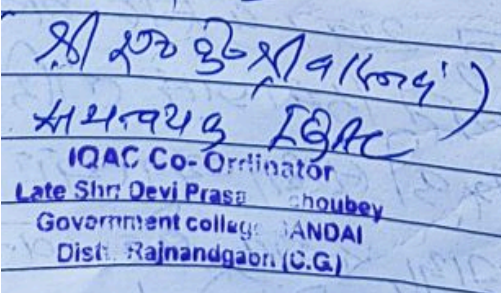 श्री एच के श्रीवास्तव)
समन्वयक IQAC
IQAC Co-Ordinator
Late Shri Devi Prasa choubey
Government colleg ANDAI
Dist. Rajnandgaon (C.G.)